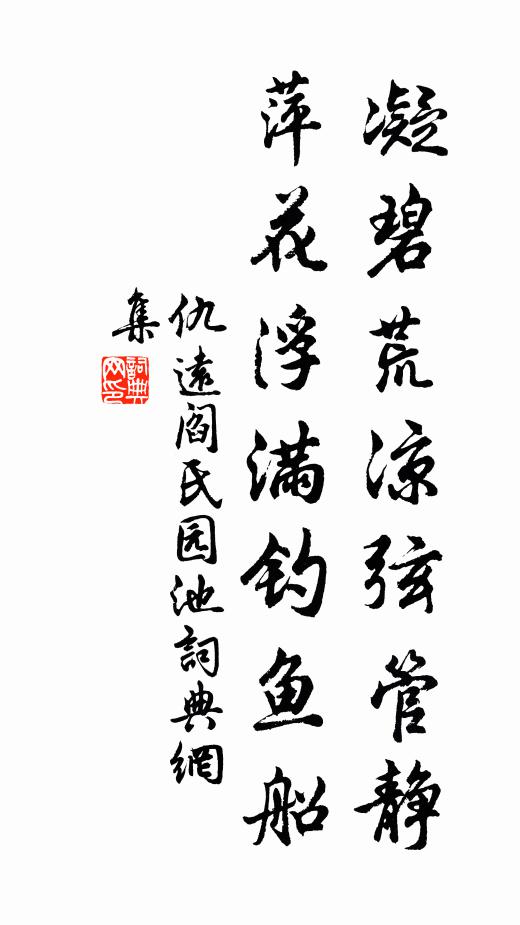 凝碧荒凉弦管静
萍花浮满钓鱼船
仇远阎氏园池詞典網
集
詞典网印